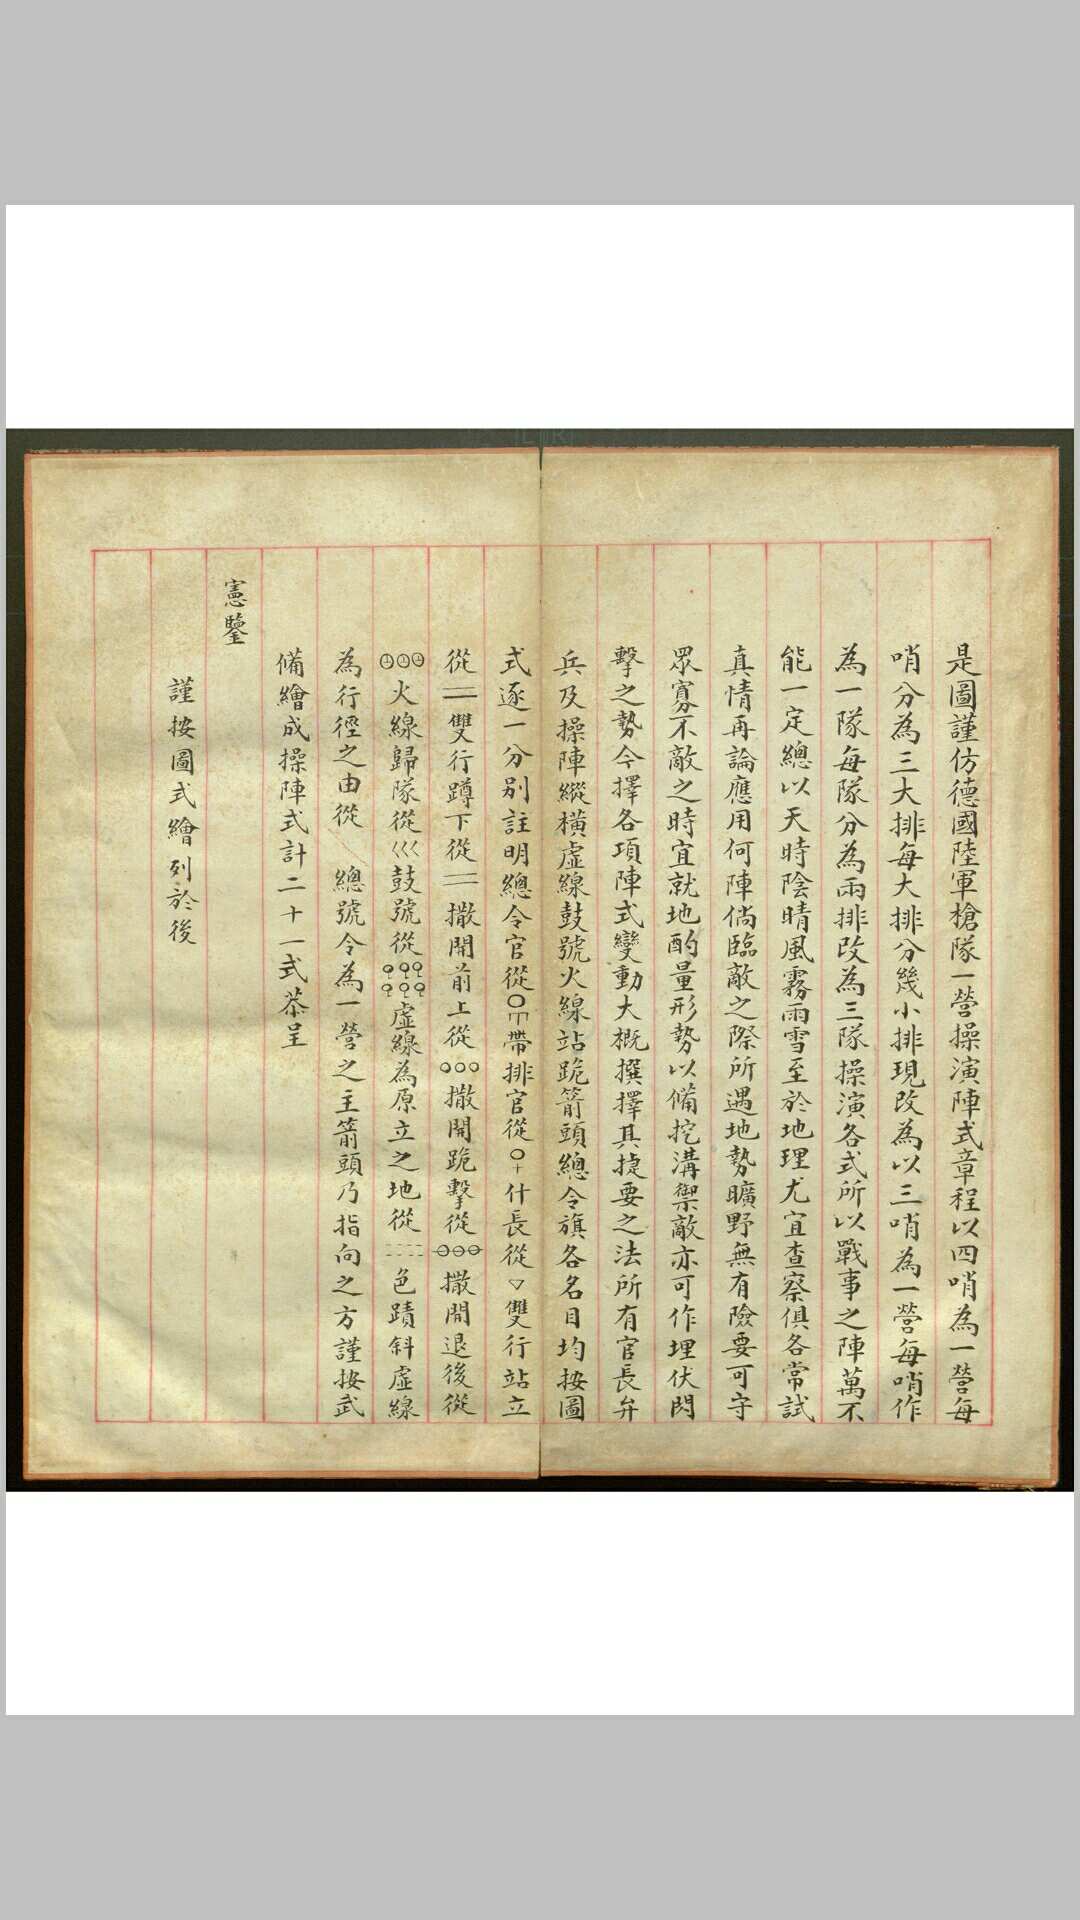 是圖謹仿德國陸軍槍隊一營操演陣式章程以四哨為一營每
哨分為三大排每大排分幾小排現改為以三哨為一營每哨作
為一隊每隊分為兩排改為三隊操演各式所以戰事之陣萬不
能一定總以天時陰晴風霧雨雪至於地理尤宜查察俱各常試
真情再論應用何陣倘臨敵之際所遇地勢曠野無有險要可守
眾寡不敵之時宜就地酌量形勢以備挖溝禦敵亦可作埋伏閃
擊之勢今擇各項陣式變動大概撰擇其捷要之法所有官長弁
兵及操陣縱橫虛線鼓號火線站跪箭頭總令旗各名目均按圖
式逐一分別註明總令官從帶排官從什長從▽雙行站立
從二雙行蹲下從二撒開前上從○○○撒開跪擊從撒開退後從
火線歸隊從鼓號從虛線為原立之地從色蹟斜虛線
為行徑之由從總號令為一營之主箭頭乃指向之方謹按武
備繪成操陣式計二十一式恭呈
憲鑒
謹按圖式繪列於後